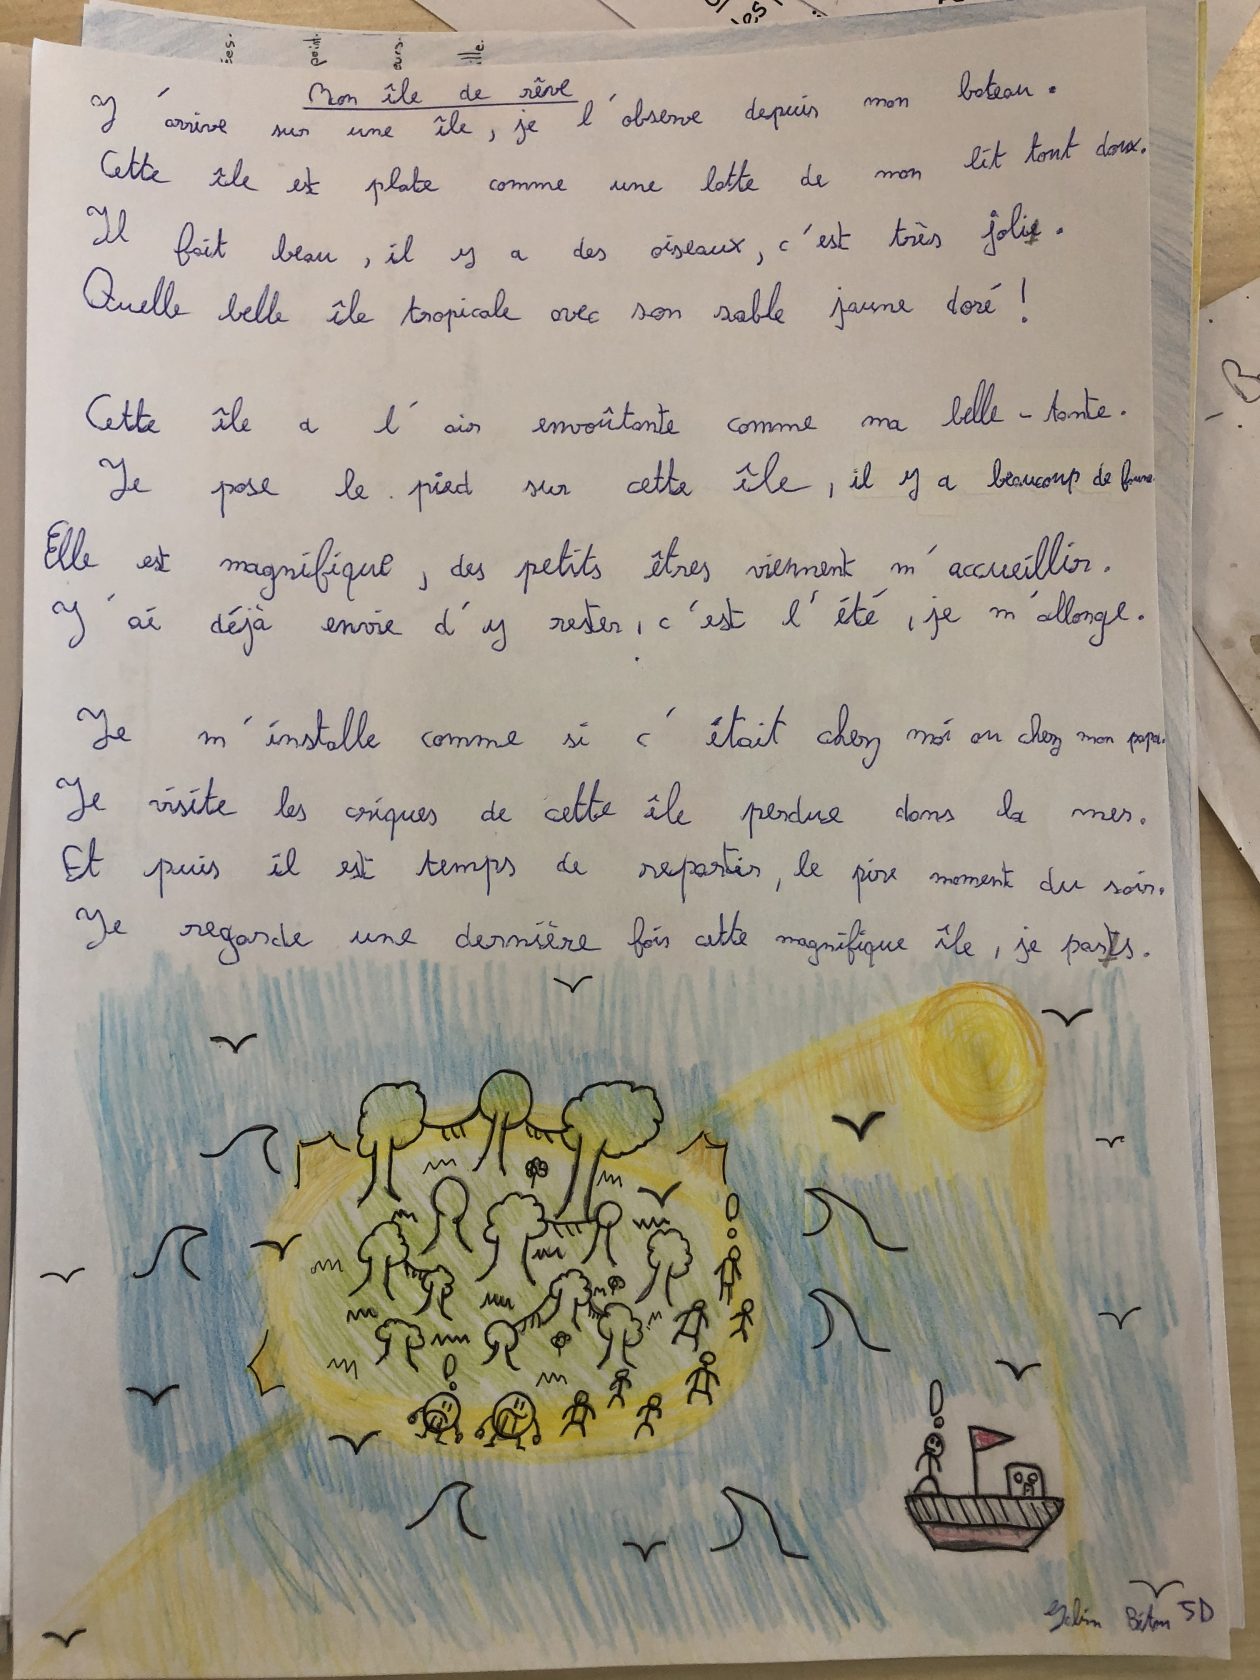 ses.
point.
ours.
ille.
Mon île de rêve
J'arrive sur une île, je l'observe depuis mon bateau.
Cette île est plate comme une latte de mon lit tout doux.
Il fait beau, il y a des oiseaux, c'est très joli.
Quelle belle île tropicale avec son sable jaune doré !
Cette île a l'air envoûtante comme ma belle-tante.
Je pose le pied sur cette île, il y a beaucoup de faune.
Elle est magnifique, des petits êtres viennent m'accueillir.
J'ai déjà envie d'y rester, c'est l'été, je m'allonge.
Je m'installe comme si c'était chez moi ou chez mon papa.
Je visite les criques de cette île perdue dans la mer.
Et puis il est temps de repartir, le pire moment du soir.
Je regarde une dernière fois cette magnifique île, je pars.
5D